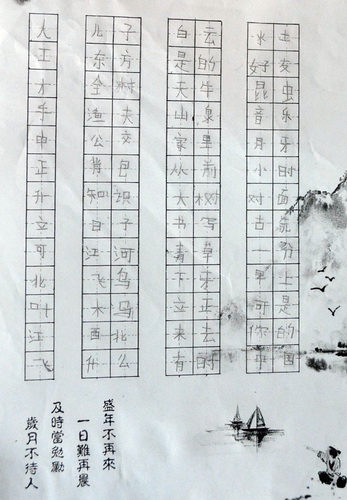 大王才手申正升立可北叶江飞
儿子
东方
全树
渔夫
公交
背包
知识
日子
江河
飞鸟
木马
西北
什么
白云
是的
天牛
山泉
家里
从前
大树
书写
青草
下来
立正
来去
有时
水土
好友
昆虫
音乐
月牙
小时
对面
古
一分
早上
可是
你的
中国
盛年不再來
一日難再晨
及時當勉勵
歲月不待人